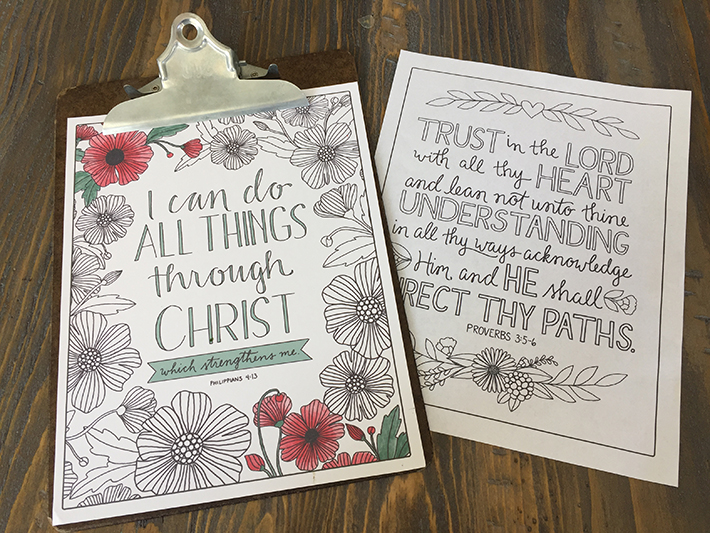 I can do
ALL THINGS
through
CHRIST
which strengthens me.
PHILIPPIANS 4:13
TRUST in the LORD
with all thy HEART
and lean not unto thine
UNDERSTANDING
in all thy ways acknowledge
Him and HE shall
RECT THY PATHS.
PROVERBS 3:5-6